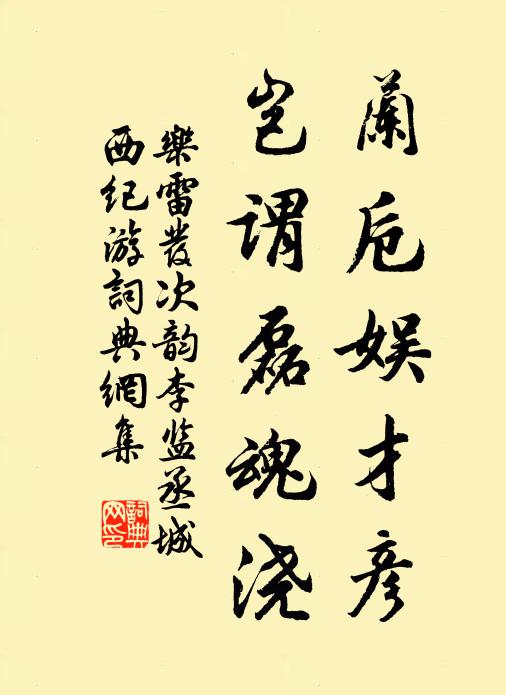 蘭卮娱才彦
岂谓磊魂浇
樂雷發次韵李监丞城
西纪游詞典網集
詞典
网印